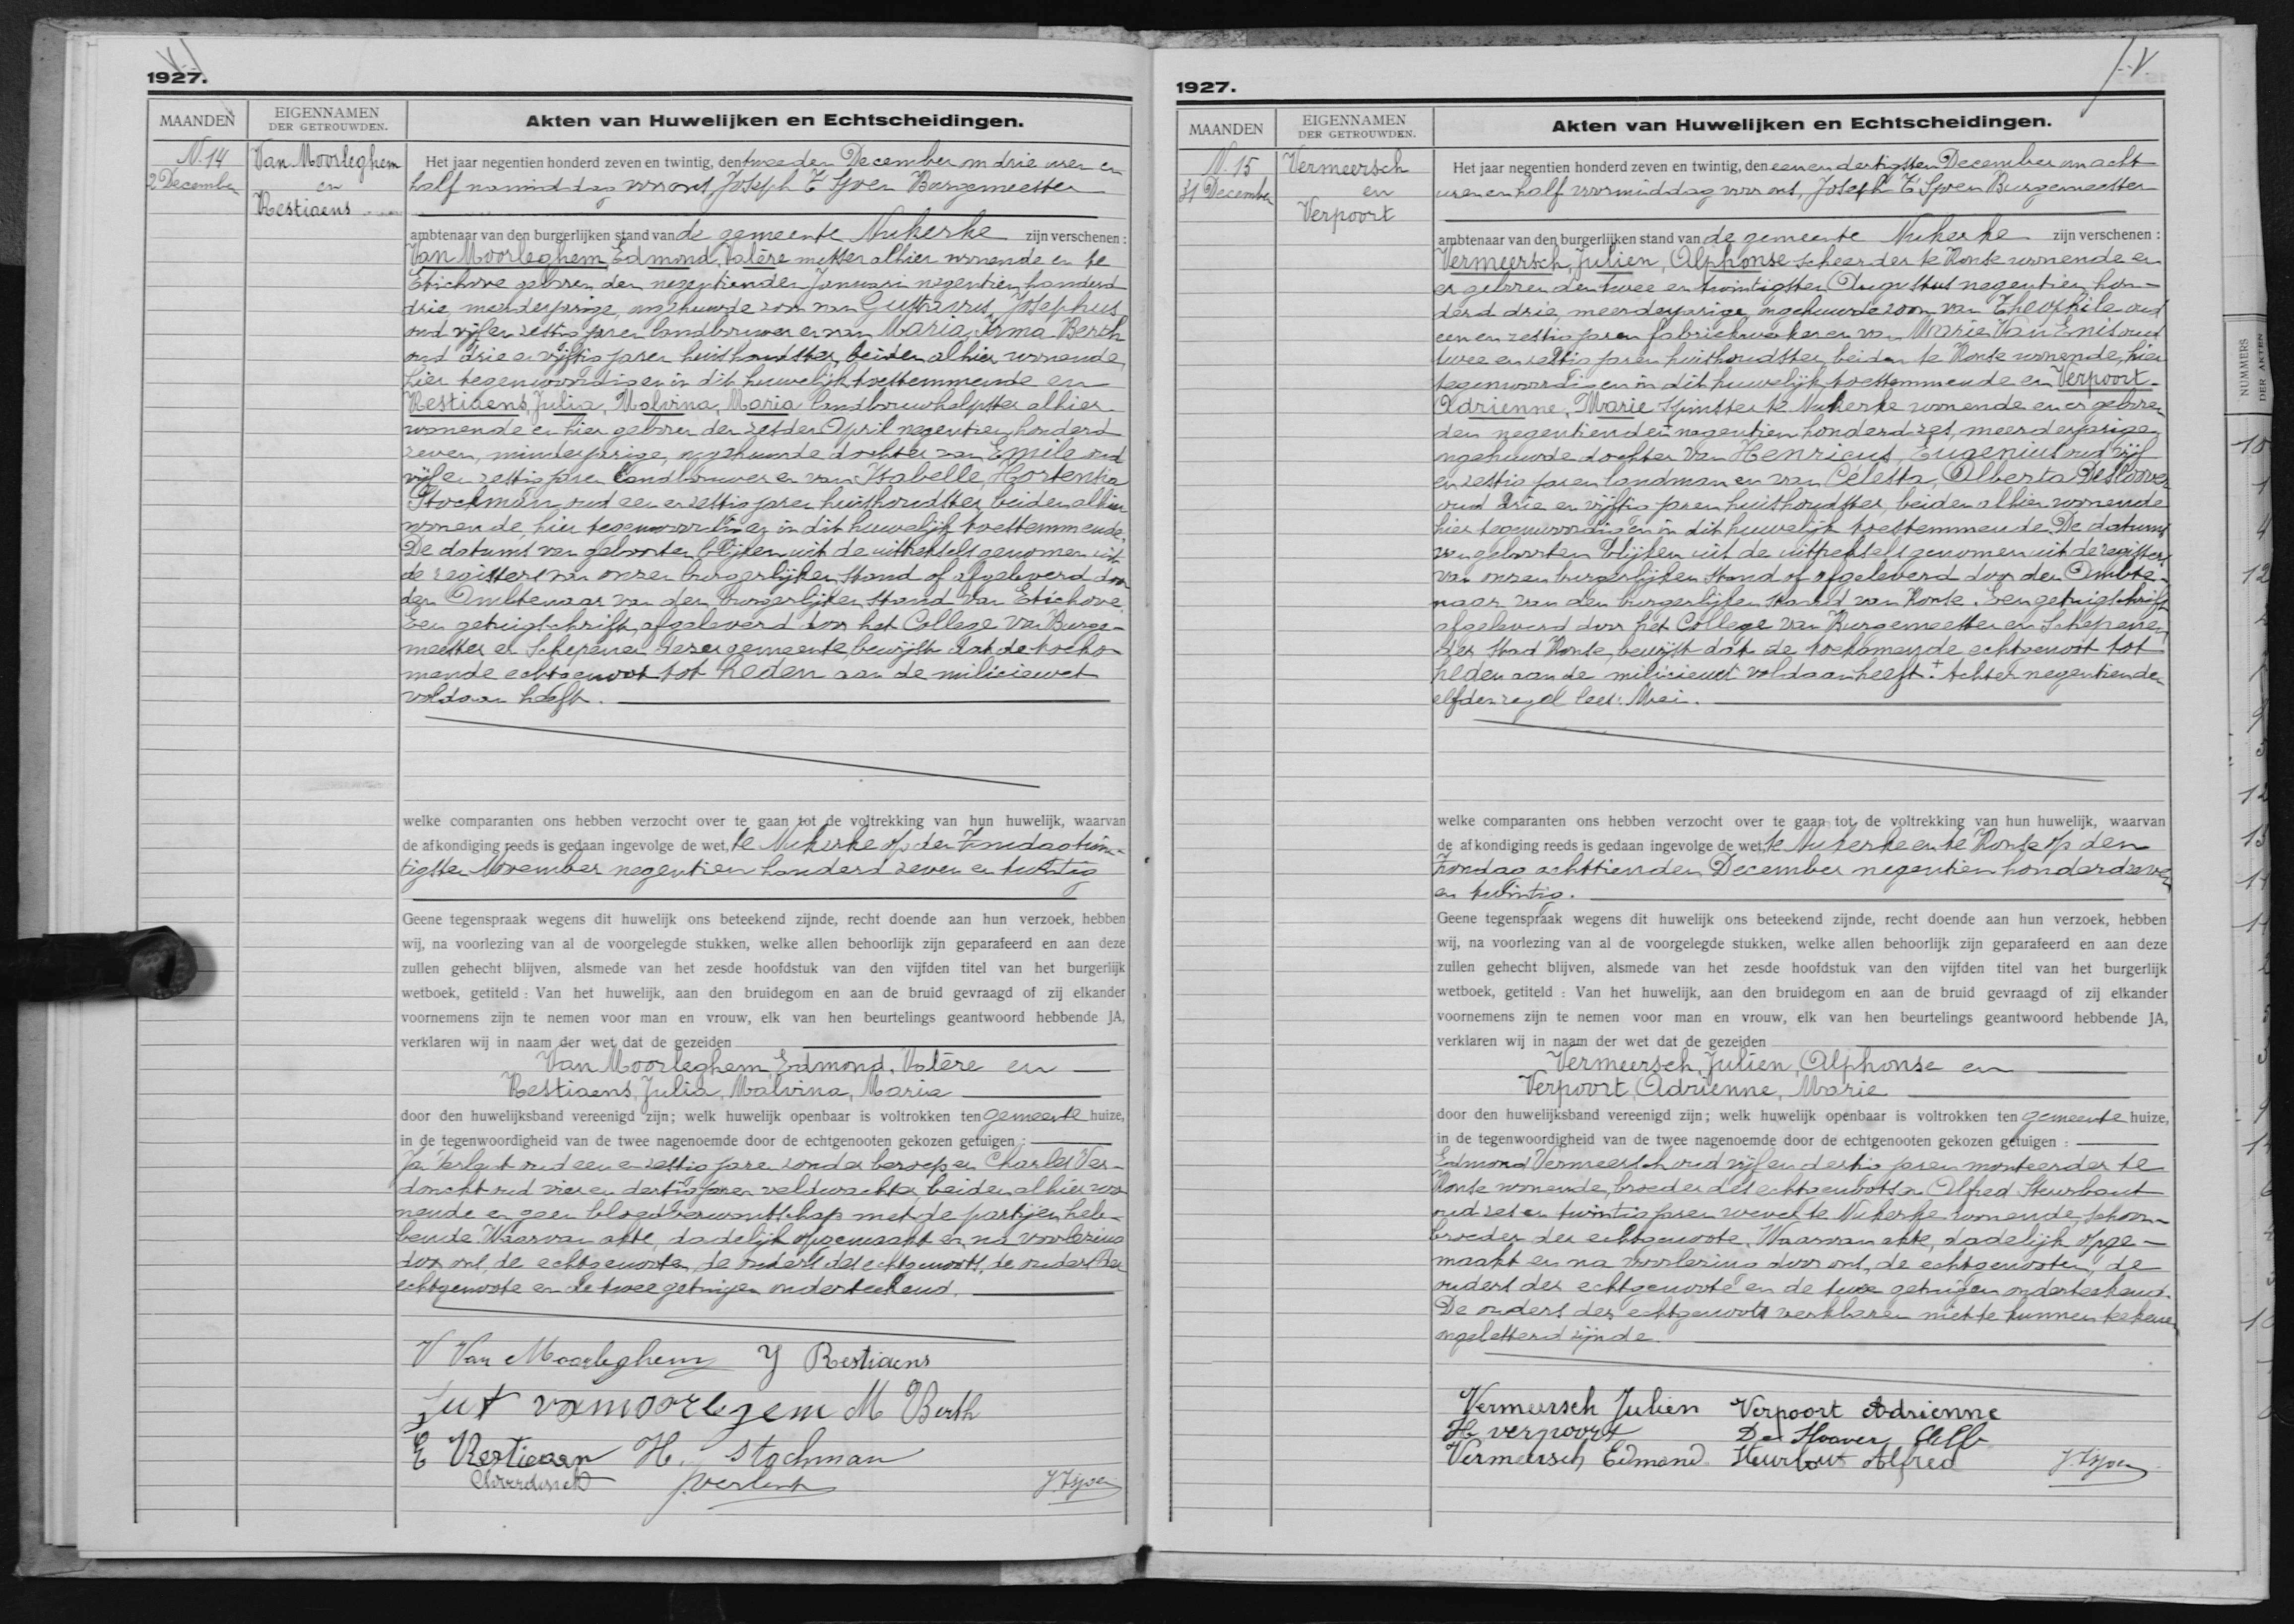 1927.
MAANDEN
EIGENNAMEN
DER GETROUWDEN.
Akten van Huwelijken en Echtscheidingen.
N. 14
2 December
Van Moorleghem
en
Restiaens
Het jaar negentien honderd zeven en twintig, den tweeden December om drie uren en
half namiddag voor ons, Joseph T'Sjoen Burgemeester
ambtenaar van den burgerlijken stand van de gemeente Nukerke zijn verschenen :
Van Moorleghem, Edmond, Valère metser alhier wonende en te
Etichove geboren den negentienden Januari negentien honderd
drie, meerderjarige, ongehuwde zoon van Gustavus, Josephus
oud vijf en zestig jaren landbouwer en van Maria, Irma Berth
oud drie en vijftig jaren huishoudster, beiden alhier wonende,
hier tegenwoordig en in dit huwelijk toestemmende en
Restiaens, Julia, Malvina, Maria landbouwhelpster alhier
wonende en hier geboren den zesden April negentien honderd
zeven, minderjarige, ongehuwde dochter van Emile oud
vijf en zestig jaren landbouwer en van Isabelle, Hortentia
Stockman oud een en zestig jaren huishoudster, beiden alhier
wonende, hier tegenwoordig en in dit huwelijk toestemmende.
De datums van geboorten blijken uit de uittreksels genomen uit
de registers van onzen burgerlijken stand of afgeleverd door
den Ambtenaar van den burgerlijken stand van Etichove.
Een getuigschrift, afgeleverd door het College van Burge-
meester en Schepenen dezer gemeente, bewijst dat de toeko-
mende echtgenoot tot heden aan de miliciewet
voldaan heeft.
welke comparanten ons hebben verzocht over te gaan tot de voltrekking van hun huwelijk, waarvan
de afkondiging reeds is gedaan ingevolge de wet, te Nukerke op den Zondag twin-
tigsten November negentien honderd zeven en twintig
Geene tegenspraak wegens dit huwelijk ons beteekend zijnde, recht doende aan hun verzoek, hebben
wij, na voorlezing van al de voorgelegde stukken, welke allen behoorlijk zijn geparafeerd en aan deze
zullen gehecht blijven, alsmede van het zesde hoofdstuk van den vijfden titel van het burgerlijk
wetboek, getiteld : Van het huwelijk, aan den bruidegom en aan de bruid gevraagd of zij elkander
voornemens zijn te nemen voor man en vrouw, elk van hen beurtelings geantwoord hebbende JA,
verklaren wij in naam der wet dat de gezeiden
Van Moorleghem, Edmond, Valère en
Restiaens, Julia, Malvina, Maria
door den huwelijksband vereenigd zijn; welk huwelijk openbaar is voltrokken ten gemeente huize,
in de tegenwoordigheid van de twee nagenoemde door de echtgenooten gekozen getuigen :
oud een en zestig jaren zonder beroep en Charles Ver-
donckt oud vier en dertig jaren veldwachter, beiden alhier wo-
nende en geen bloedverwantschap met de partijen heb-
bende. Waarvan akte, dadelijk opgemaakt en, na voorlezing
door ons, de echtgenooten, de ouders des echtgenoots, de ouders der
echtgenoote en de twee getuigen onderteekend.
V Van Moorleghem J Restiaens
Gust vanmoorlegem M Berth
E Restiaen H. Stochman
Ch verdonckt J Verlent J. T'Sjoen
1927.
MAANDEN
EIGENNAMEN
DER GETROUWDEN.
Akten van Huwelijken en Echtscheidingen.
N. 15
31 December
Vermeersch
en
Verpoort
Het jaar negentien honderd zeven en twintig, den eenen dertigsten December om acht
uren en half voormiddag voor ons, Joseph T'Sjoen Burgemeester
ambtenaar van den burgerlijken stand van de gemeente Nukerke zijn verschenen :
Vermeersch, Julien, Alphonse scheerder te Ronse wonende en
er geboren den twee en twintigsten Augustus negentien hon-
derd drie, meerderjarige, ongehuwde zoon van Theophile oud
een en zestig jaren fabriekwerker en van Marie Van Enis oud
twee en zestig jaren huishoudster, beiden te Ronse wonende, hier
tegenwoordig en in dit huwelijk toestemmende en Verpoort
Adrienne, Marie spinster te Nukerke wonende en er geboren
den negentienden + negentien honderd zes, meerderjarige,
ongehuwde dochter van Henricus, Eugenius oud vijf
en zestig jaren landman en van Celesta, Alberta De Sloover
oud drie en vijftig jaren huishoudster, beiden alhier wonende
hier tegenwoordig en in dit huwelijk toestemmende. De datums
van geboorten blijken uit de uittreksels genomen uit de registers
van onzen burgerlijken stand of afgeleverd door den Ambte-
naar van den burgerlijken stand van Ronse. Een getuigschrift
afgeleverd door het College van Burgemeester en Schepenen
der stad Ronse, bewijst dat de toekomende echtgenoot tot
heden aan de miliciewet voldaan heeft. + Achter negentienden
elfden regel lees: Mei.
welke comparanten ons hebben verzocht over te gaan tot de voltrekking van hun huwelijk, waarvan
de afkondiging reeds is gedaan ingevolge de wet, te Nukerke en te Ronse op den
Zondag achttienden December negentien honderd zeven
en twintig.
Geene tegenspraak wegens dit huwelijk ons beteekend zijnde, recht doende aan hun verzoek, hebben
wij, na voorlezing van al de voorgelegde stukken, welke allen behoorlijk zijn geparafeerd en aan deze
zullen gehecht blijven, alsmede van het zesde hoofdstuk van den vijfden titel van het burgerlijk
wetboek, getiteld : Van het huwelijk, aan den bruidegom en aan de bruid gevraagd of zij elkander
voornemens zijn te nemen voor man en vrouw, elk van hen beurtelings geantwoord hebbende JA,
verklaren wij in naam der wet dat de gezeiden
Vermeersch, Julien, Alphonse en
Verpoort, Adrienne, Marie
door den huwelijksband vereenigd zijn; welk huwelijk openbaar is voltrokken ten gemeente huize,
in de tegenwoordigheid van de twee nagenoemde door de echtgenooten gekozen getuigen :
Edmond Vermeersch oud vijf en dertig jaren monteerder te
Ronse wonende, broeder des echtgenoots en Alfred Steurbaut
oud zes en twintig jaren wever te Nukerke wonende, schoon-
broeder der echtgenoote. Waarvan akte, dadelijk opge-
maakt en na voorlezing door ons, de echtgenooten, de
ouders der echtgenoote en de twee getuigen onderteekend.
De ouders des echtgenoots verklaren niet te kunnen teekenen
ongeletterd zijnde.
Vermeersch Julien Verpoort Adrienne
H verpoort De Sloover Alb
Vermeersch Edmond Steurbaut Alfred J. T'Sjoen
NUMMERS
DER AKTEN